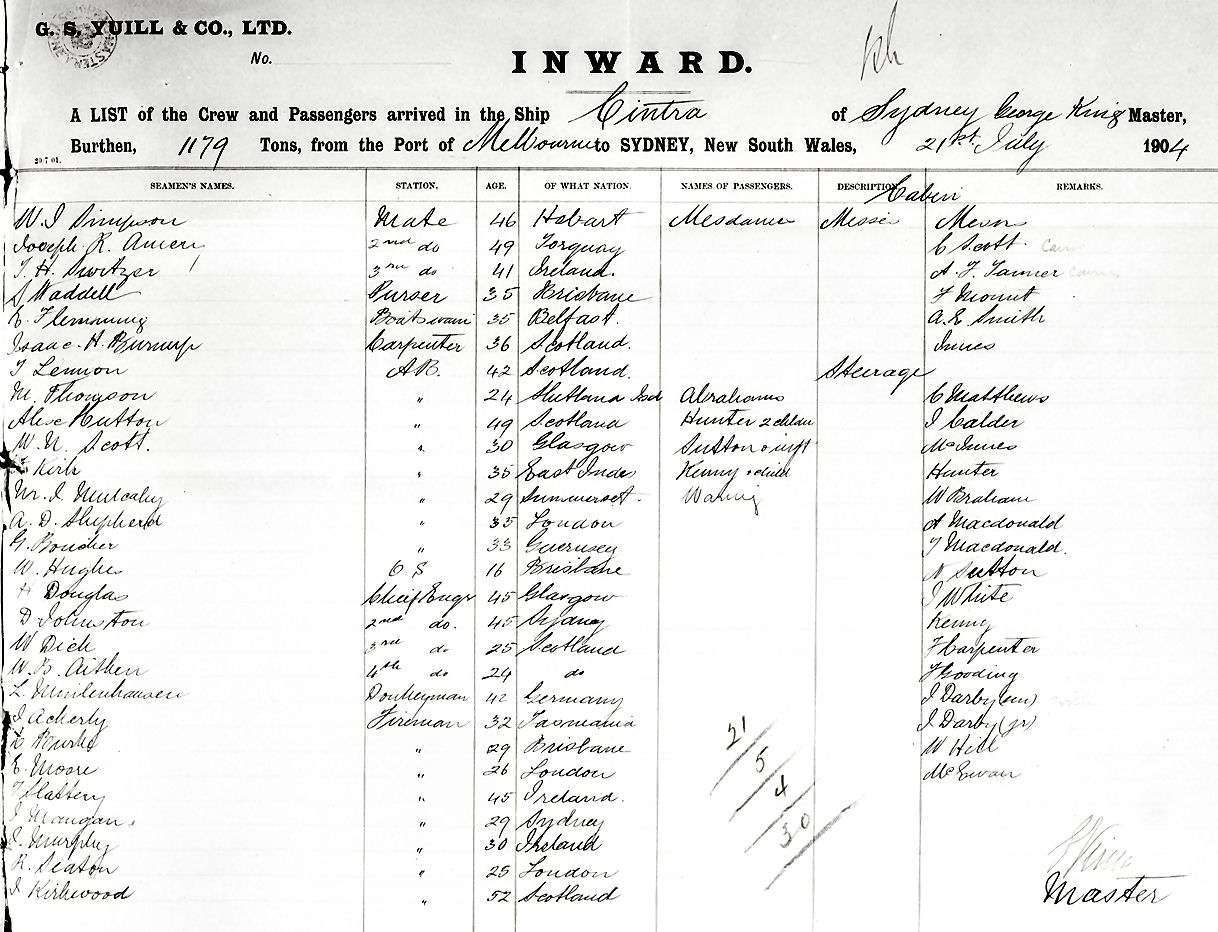 G. S. YUILL & CO., LTD.
No.
INWARD.
A LIST of the Crew and Passengers arrived in the Ship Cintra of Sydney George King Master,
Burthen, 1179 Tons, from the Port of Melbourne to SYDNEY, New South Wales, 21st July 1904
29 7 01.
SEAMEN'S NAMES. STATION. AGE. OF WHAT NATION. NAMES OF PASSENGERS. DESCRIPTION. REMARKS.
Cabin
W. J Simpson Mate 46 Hobart Mesdames Misses Messrs
Joseph R. 2nd do 49 Torquay C Scott
T. H. Switzer 3rd do 41 Ireland. A. F. Tanner
S Waddell Purser 35 Brisbane F Mount
E. Flemming Boatswain 35 Belfast. A. E Smith
Isaac. H. Carpenter 36 Scotland. Innes
T Lennon A B. 42 Scotland. Steerage
M. Thomson " 24 Shetland Isd Abrahams C Matthews
Alex Hutton " 49 Scotland Hunter 2 childn J Calder
W. N. Scott. " 30 Glasgow Sutton & inft McInnes
Kirk " 35 East Indes Kenny & child Hunter
Wm. J. Mulcahy " 29 Summerset. W Braham
A. D. Shepherd " 35 London A Macdonald
G. Boucher " 33 Guernsey T Macdonald.
W. Hughes O S 16 Brisbane N Sutton
H Douglas Chief Engr 45 Glasgow J White
D Johnston 2nd do. 45 Sydney Kenny
W Dick 3rd do 25 Scotland F Carpenter
W. B. Aitken 4th do 24 do F Gooding
L. Donkeyman 42 Germany J Darby (sen)
J Ackerly Fireman 32 Tasmania J Darby (jr)
E Burke " 29 Brisbane W Hill
E. Moore " 26 London McEwan
T Slattery " 45 Ireland.
J Mangan. " 29 Sydney
J. Murphy " 30 Ireland
R. Seaton " 25 London
J Kirkwood " 52 Scotland
21
5
4
30
G King
Master